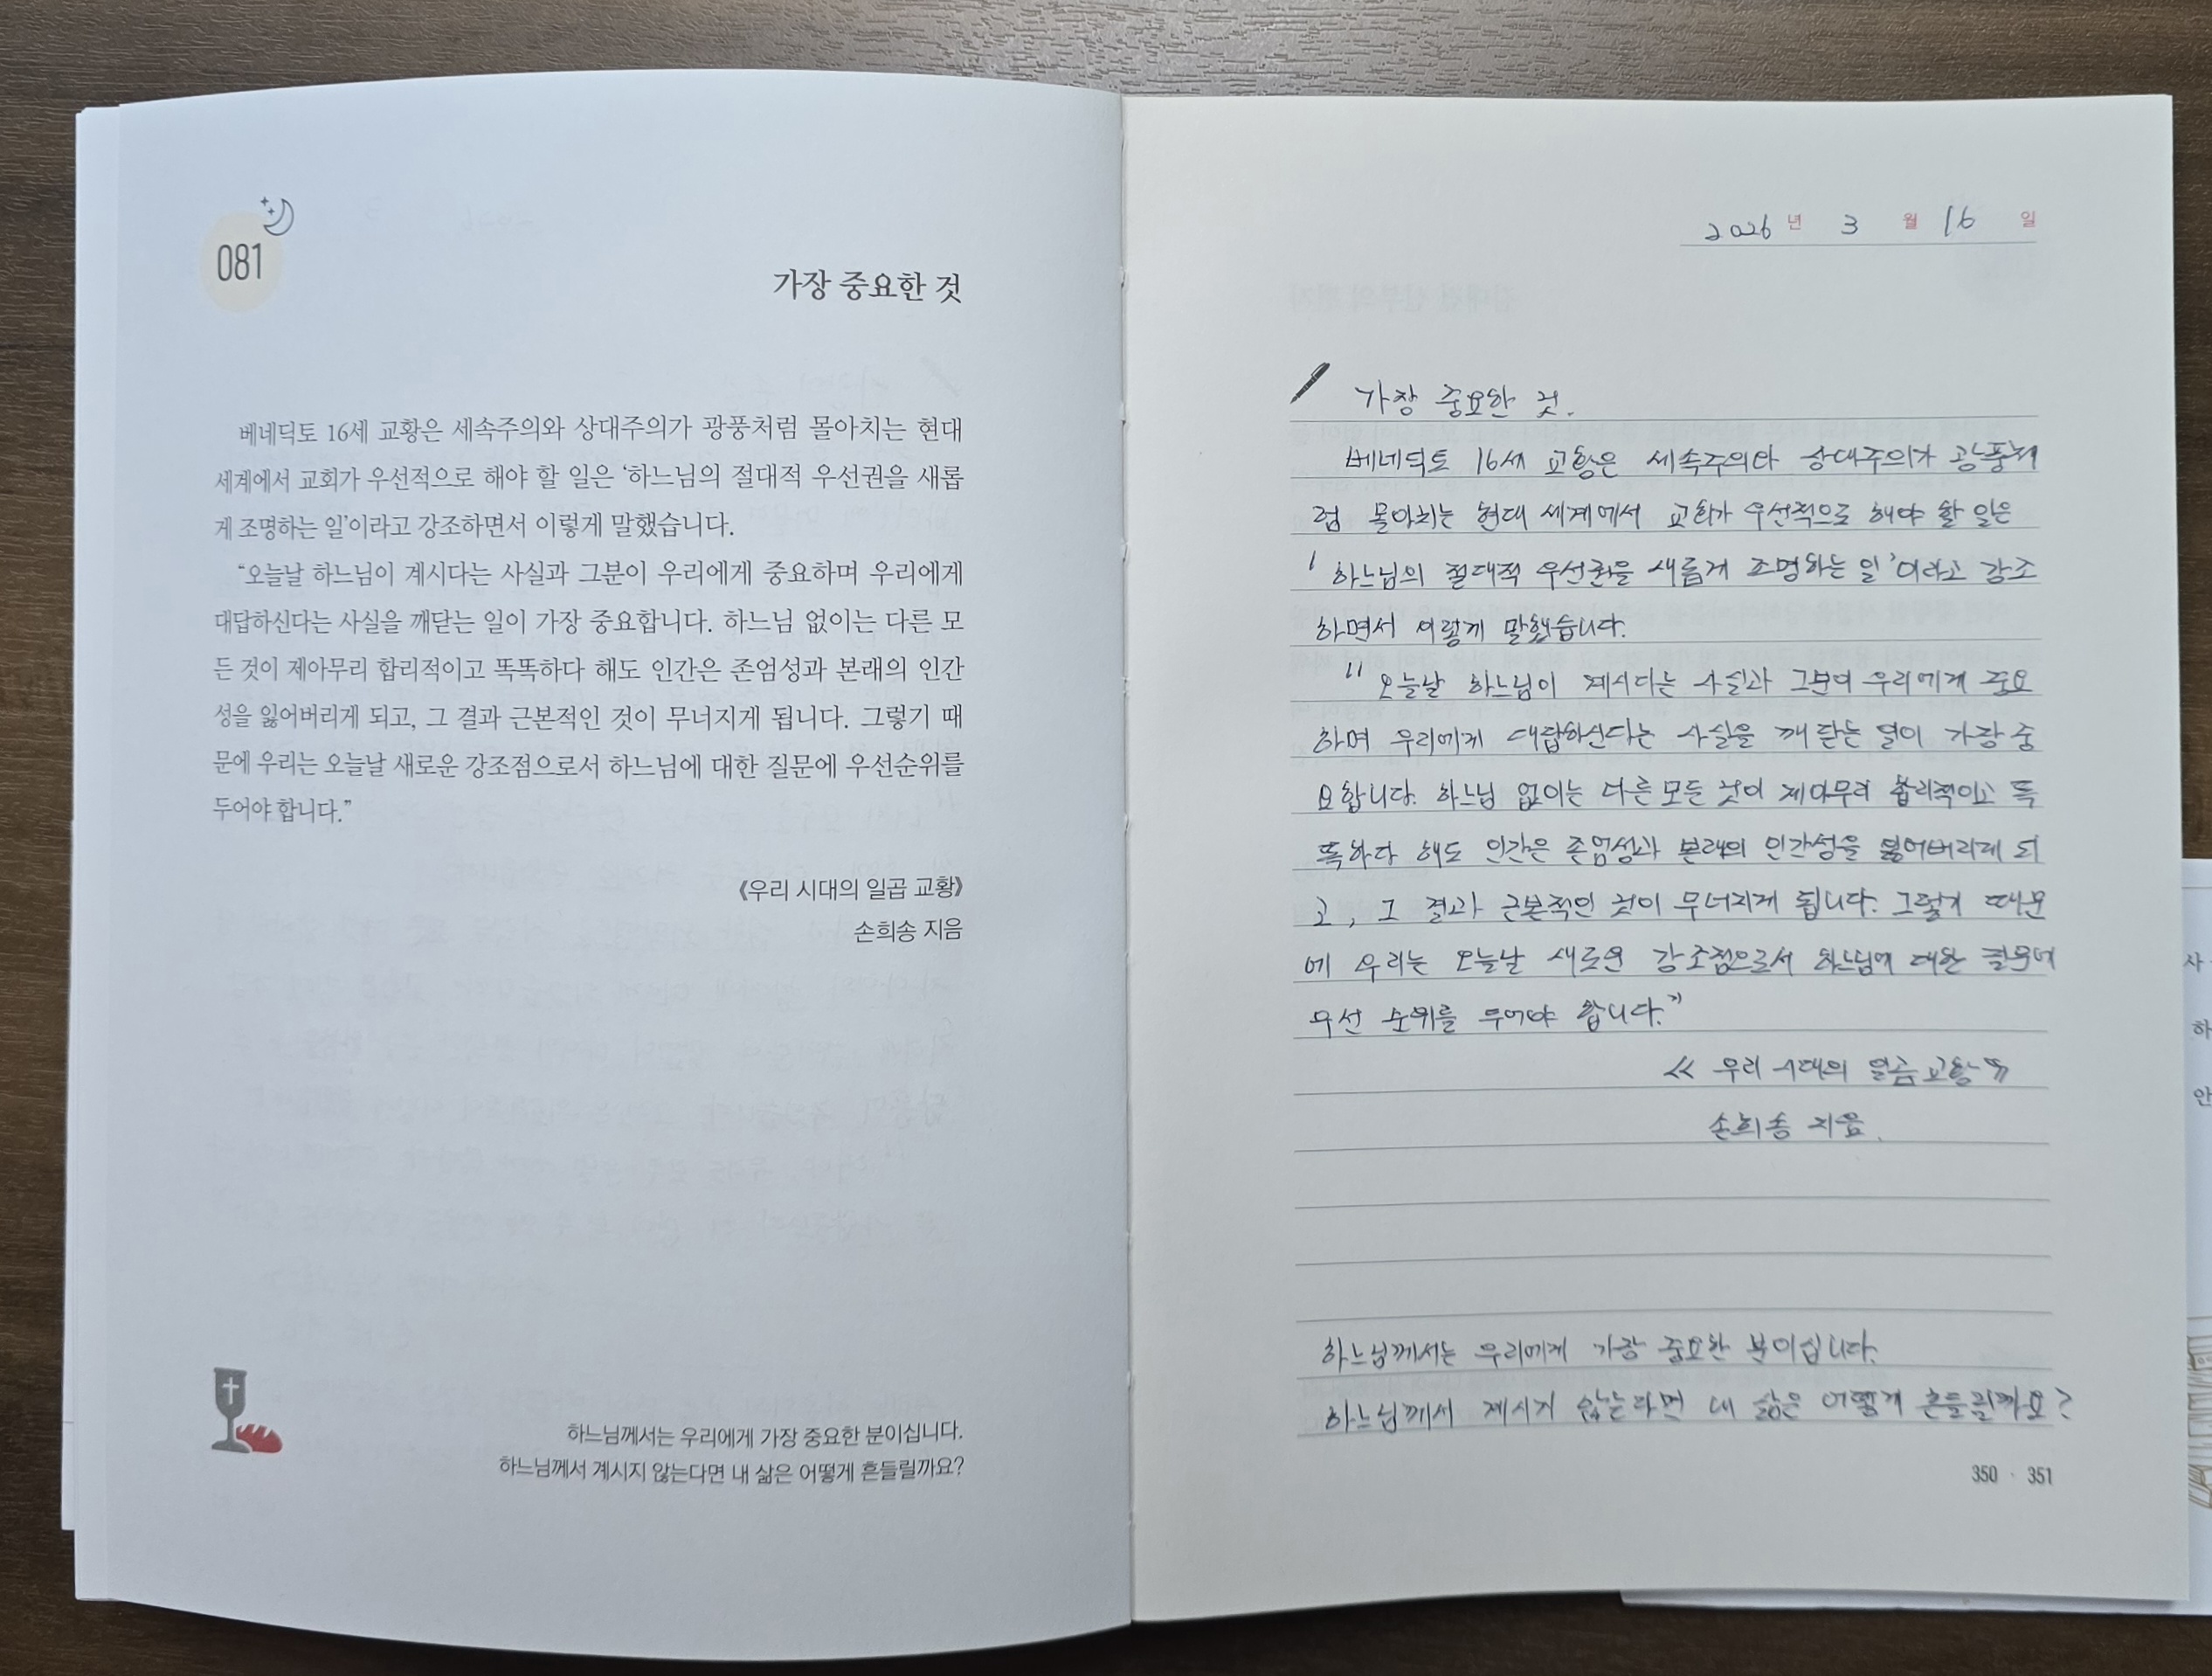 081
가장 중요한 것
베네딕토 16세 교황은 세속주의와 상대주의가 광풍처럼 몰아치는 현대
세계에서 교회가 우선적으로 해야 할 일은 ‘하느님의 절대적 우선권을 새롭
게 조명하는 일’이라고 강조하면서 이렇게 말했습니다.
“오늘날 하느님이 계시다는 사실과 그분이 우리에게 중요하며 우리에게
대답하신다는 사실을 깨닫는 일이 가장 중요합니다. 하느님 없이는 다른 모
든 것이 제아무리 합리적이고 똑똑하다 해도 인간은 존엄성과 본래의 인간
성을 잃어버리게 되고, 그 결과 근본적인 것이 무너지게 됩니다. 그렇기 때
문에 우리는 오늘날 새로운 강조점으로서 하느님에 대한 질문에 우선순위를
두어야 합니다.”
《우리 시대의 일곱 교황》
손희송 지음
하느님께서는 우리에게 가장 중요한 분이십니다.
하느님께서 계시지 않는다면 내 삶은 어떻게 흔들릴까요?
2026 년 3 월 16 일
가장 중요한 것.
베네딕토 16세 교황은 세속주의와 상대주의가 광풍처
럼 몰아치는 현대 세계에서 교회가 우선적으로 해야 할 일은
'하느님의 절대적 우선권을 새롭게 조명하는 일'이라고 강조
하면서 이렇게 말했습니다.
"오늘날 하느님이 계시다는 사실과 그분이 우리에게 중요
하며 우리에게 대답하신다는 사실을 깨닫는 일이 가장 중
요합니다. 하느님 없이는 다른 모든 것이 제아무리 합리적이고 똑
똑하다 해도 인간은 존엄성과 본래의 인간성을 잃어버리게 되
고, 그 결과 근본적인 것이 무너지게 됩니다. 그렇기 때문
에 우리는 오늘날 새로운 강조점으로서 하느님에 대한 질문에
우선 순위를 두어야 합니다."
《우리 시대의 일곱 교황》
손희송 지음.
하느님께서는 우리에게 가장 중요한 분이십니다.
하느님께서 계시지 않는다면 내 삶은 어떻게 흔들릴까요?
350 · 351
사
하
안